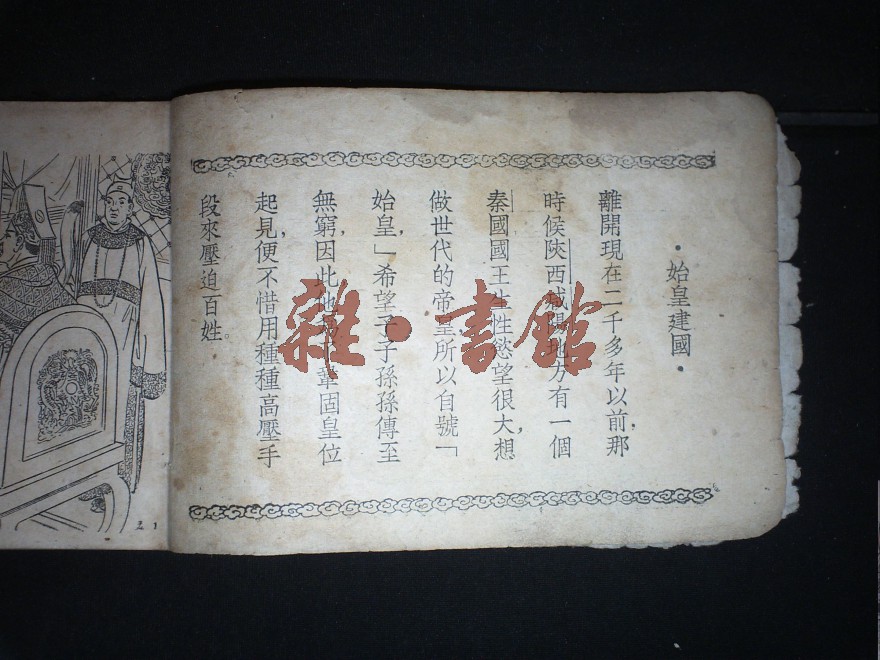 ・始皇建國・
離開現在二千多年以前,那
時候陝西咸陽地方有一個
秦國國王生性慾望很大,想
做世代的帝皇,所以自號「
始皇,」希望子子孫孫傳至
無窮,因此他鞏固皇位
起見,便不惜用種種高壓手
段來壓迫百姓。
雜・書館